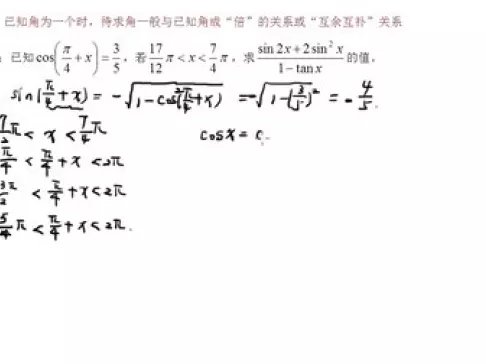 已知角为一个时，待求角一般与已知角成“倍”的关系或“互余互补”关系
已知cos(π/4+x)=3/5，若17/12π<x<7/4π，求(sin2x+2sin²x)/(1-tanx)的值。
sin(π/4+x)=-√(1-cos²(π/4+x))=-√(1-(3/5)²)=-4/5.
7/2π<x<7/4π cosx=c
π/4<π/4+x<2π
3π/2<π/4+x<2π
5/4π<π/4+x<2π.